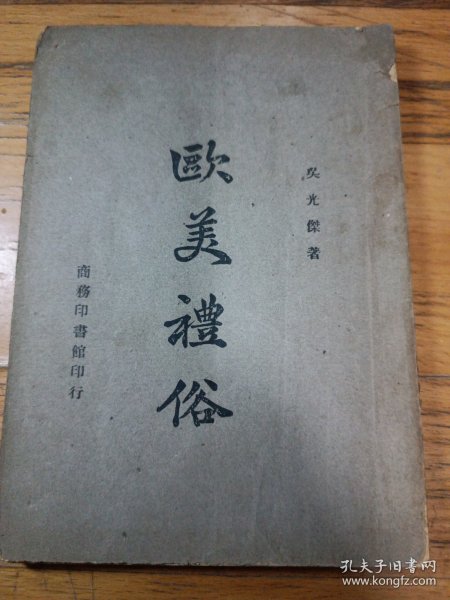 吳光傑著
歐美禮俗
商務印書館印行
孔夫子旧书网
www.kongfz.com